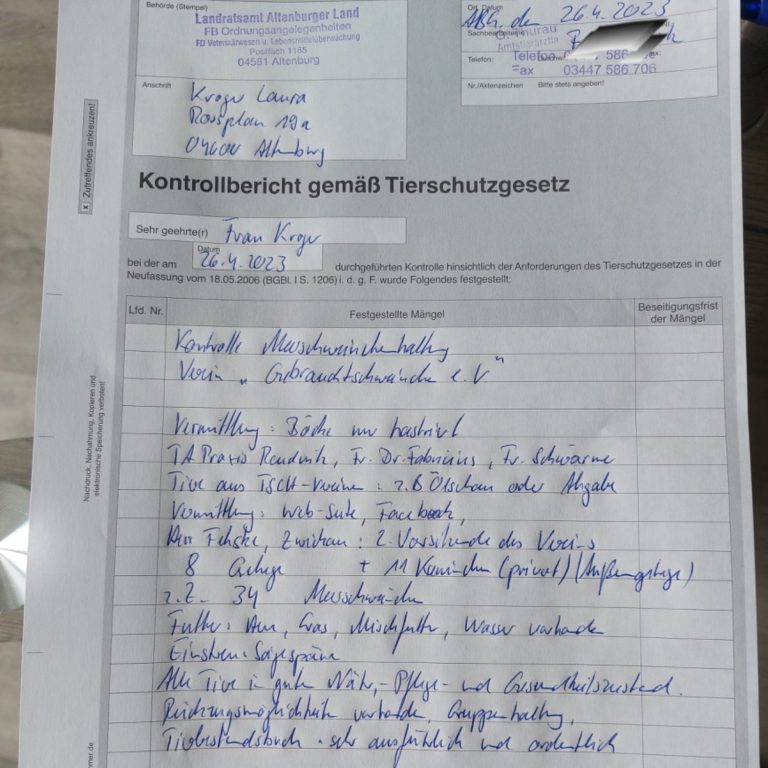 Behörde (Stempel)
Landratsamt Altenburger Land
FB Ordnungsangelegenheiten
FD Veterinärwesen u. Lebensmittelüberwachung
Postfach 1165
04581 Altenburg
Ort, Datum
ABG, den 26.4.2023
Sachbearbeiter/in
Amtstierärztin
Telefon:
Telefon 586
Fax 03447 586 706
Nr./Aktenzeichen Bitte stets angeben!
Anschrift
Kroger Laura
Rossplan 19a
04600 Altenburg
x Zutreffendes ankreuzen!
Kontrollbericht gemäß Tierschutzgesetz
Sehr geehrte(r) Frau Kroger
Datum
bei der am 26.4.2023 durchgeführten Kontrolle hinsichtlich der Anforderungen des Tierschutzgesetzes in der
Neufassung vom 18.05.2006 (BGBl. I S. 1206) i. d. g. F. wurde Folgendes festgestellt:
Lfd. Nr. Festgestellte Mängel Beseitigungsfrist der Mängel
Kontrolle Meerschweinchenhaltung
Verein „Gebrauchtschweinchen e.V."
Vermittlung: Böcke nur kastriert
TA Praxis Raudnik, Fr. Dr. Fabricius, Fr. Schwarme
Tiere aus TSCH-Vereine: z.B. Ölschau oder Abgabe
Vermittlung: Web-Seite, Facebook,
Zwickau: 2. Vorsitzende des Vereins
8 Gehege + 11 Kaninchen (privat) (Außengehege)
z.Z. 34 Meerschweinchen
Futter: Heu, Gras, Mischfutter, Wasser vorhanden
Einstreu: Sägespäne
Alle Tiere in guten Nähr-, Pflege- und Gesundheitszustand.
vorhanden, Gruppenhaltung,
Tierbestandsbuch: sehr ausführlich und ordentlich
Nachdruck, Nachahmung, Kopieren und
elektronische Speicherung verboten!